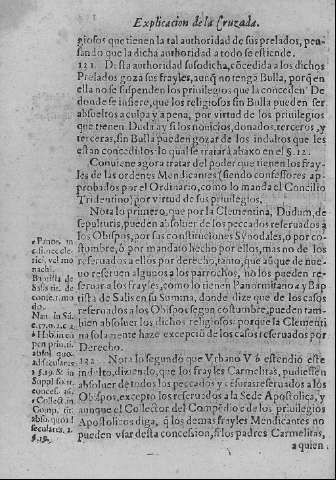 Explicacion de la Cruzada.
giosos que tienen la tal authoridad de sus prelados, pen-
sando que la dicha authoridad a todo se estiende.
121. Desta authoridad susodicha, cõcedida a los dichos
Prelados goza sus frayles, aunq̃ no tenga Bulla, porq̃ en
ella no se suspenden los priuilegios que la conceden. De
donde se infiere, que los religiosos sin Bulla pueden ser
absueltos a culpa y a pena, por virtud de los priuilegios
que tienen. Duda ay si los nouicios, donados, terceros, y
terceras, sin Bulla pueden gozar de los indultos que les
estan concedidos, lo qual se tratará abaxo en el §. 12.
Conuiene agora tratar del poder que tienen los fray-
les de las ordenes Mendicantes (siendo confessores a-
probados por el Ordinario, como lo manda el Concilio
Tridentino) por virtud de sus priuilegios.
Nota lo primero, que por la Clementina, Dudum, de
sepulturis, pueden absoluer de los peccados reseruados a
los Obispos, por las constituciones Synodales, ò por co-
stumbre, ò por mandato hecho por ellos, mas no de los
reseruados a ellos por derecho, tanto, que aũque de nue-
uo reseruen algunos a los parrochos, no los pueden re-
seruar a los frayles, como lo tienen Panormitano y Bap
tista de Salis en su Summa, donde dize que de los casos
reseruados a los Obispos segun costumbre, pueden tam
bien absoluer los dichos religiosos: porque la Clementi
na solamente haze excepcion de los casos reseruados por
Derecho.
122. Nota lo segundo que Vrbano V. estendio este
indulto, diziendo, que los frayles Carmelitas, pudiessen
absoluer de todos los peccados y cẽsuras reseruados a los
Obispos, excepto los reseruados a la Sede Apostolica, y
aunque el Collector del Compẽdio de los priuilegios
Apostolicos diga, q̃ los demas frayles Mendicantes no
pueden vsar desta concession, si los padres Carmelitas,
a quien
c Panor. in
c. si nec cle-
rici, vel mo
nachi.
Baptista de
Salis tit. de
confess. mo
do.